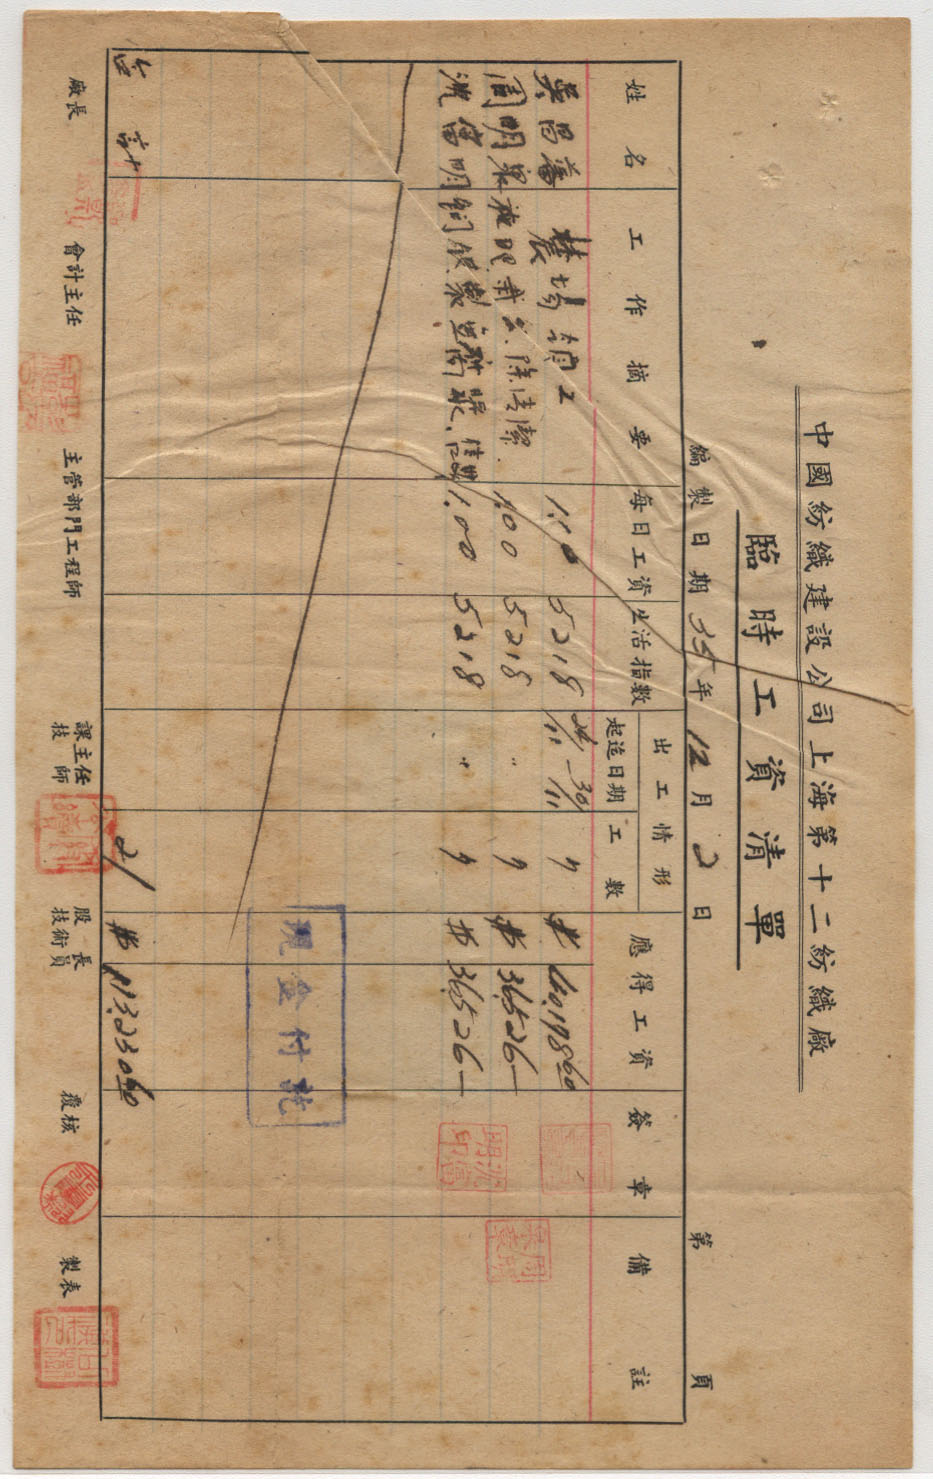 中國紡織建設公司上海第十二紡織廠
臨時工資清單
編製日期35年12月2日 第 頁
姓名 工作摘要 每日工資 生活指數 出工情形 應得工資 簽章 備註
起迄日期 工數
吳昌蕃 農場領工 1.10 5218 24/11-30/11 7 $40,178.60
周明泉 5218 〃 7 $36,526-
沈富明 1.00 5218 〃 7 $36,526-
現金付訖
合計 21 $113,230.60
廠長 會計主任 主管部門工程師 課主任 股長 覆核 製表
技師 技術員